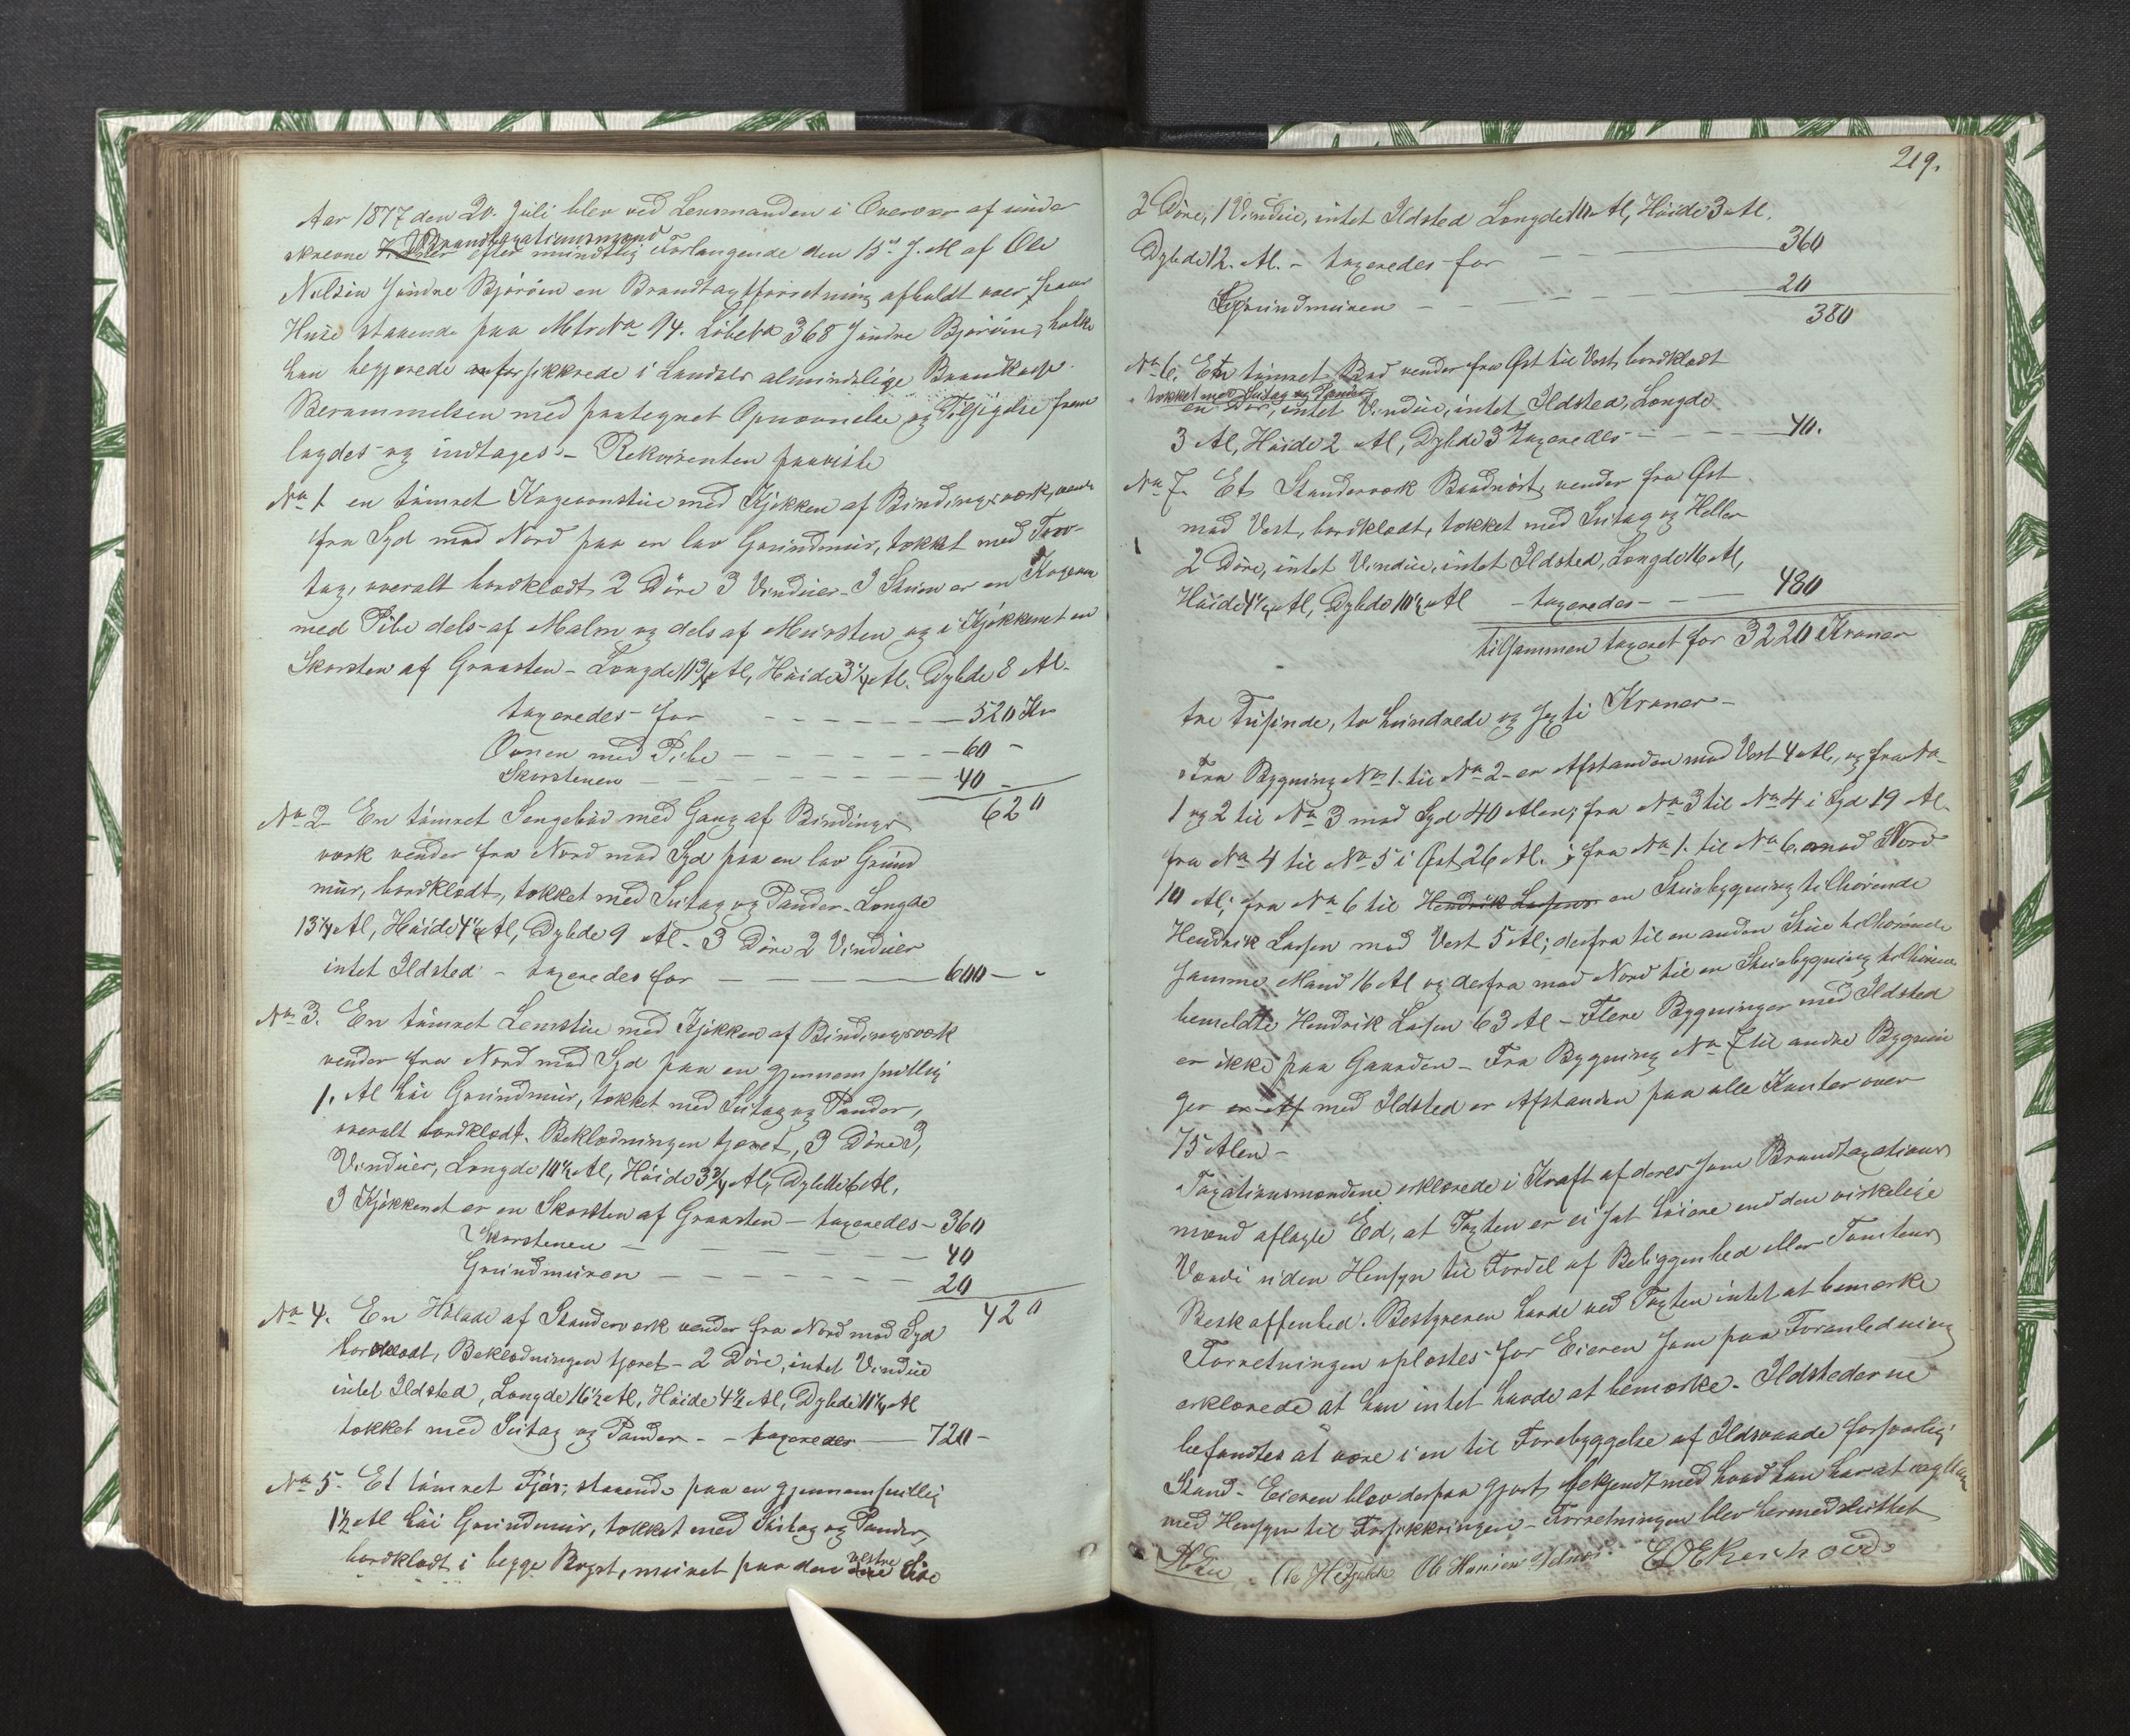 Aar 1877 den 20. Juli blev ved Lensmanden i Ovevær af under
skrevne Brandtaxationsmænd efter mundtlig Forlangende den 15de J. M af Ole
Nilsen Jndre Björöen en Brandtaxtforretning afholdt over hans
Huse staaende paa Mtr No 14. Löbe No 368 Jndre Björöen, hvilke
han begjærede forsikkrede i Landets almindelige Brandkasse.
Berammelsen med paategnet Opnævnelse og Tilsigelse frem
lagdes og indtages. - Rekvirenten paaviste
No 1 en tömret Kageovnstue med Kjökken af Bindingsværk, vender
fra Syd mod Nord paa en lav Grundmur, tækket med Torv-
tag, overalt bordklædt 2 Döre 3 Vinduer - I Stuen er en Kageovn
med Pibe dels af Malm og dels af Mursten og i Kjökkenet en
Skorsten af Graasten - Længde 11 3/4 Al, Höide 3 1/4 Al. Dybde 8 Al.
taxeredes for - - - - - 520 Kr
Ovnen med Pibe - - - - - 60 -
Skorstenen - - - - - 40 -
620
No 2 - En tömret Sengebod med Gang af Bindings
værk vender fra Nord mod Syd paa en lav Grund
mur, bordklædt, tækket med Sutag og Pander - Længde
13 1/4 Al, Höide 4 1/4 Al, Dybde 9 Al - 3 Döre 2 Vinduer
intet Ildsted - taxeredes for - - - 600 -
No 3. En tömret Lemstue med Kjökken af Bindingsværk
vender fra Nord mod Syd paa en gjennemsnitlig
1. Al höi Grundmur, tækket med Sutag og Pander,
overalt bordklædt. Beklædningen tjæret, 3 Döre 3,
Vinduer, Længde 10 1/2 Al, Höide 3 3/4 Al, Dybde 6 Al,
I Kjökkenet er en Skorsten af Graasten - taxeredes - 360
Skorstenen - - - - - 40
Grundmuren - - - - - 20
420
No 4. En Hölade af Standerværk vender fra Nord mod Syd
bordklædt, Beklædningen tjæret - 2 Döre, intet Vindue
intet Ildsted, Længde 16 1/2 Al, Höide 4 1/2 Al, Dybde 11 1/4 Al
tækket med Sutag og Pander - - taxeredes - 720 -
No 5. Et tömret Fjös, staaende paa en gjennemsnitlig
1 1/2 Al höi Grundmur, tækket med Sutag og Pander,
bordklædt i begge Bryst, muret paa den vestre Side
219.
2 Döre, 1 Vindue, intet Ildsted Længde 10 Al, Höide 3 Al.
Dybde 12. Al. - taxeredes for - - - 360
Grundmuren - - - - 20
380
No 6. Et tömret Bod vender fra Öst til Vest, bordklædt
tækket med Sutag og Pander
en Dör, intet Vindue, intet Ildsted, Længde
3 Al, Höide 2 Al, Dybde 3 taxeredes - - - 40.
No 7. Et Standerværk Baadnöst, vender fra Öst
mod Vest, bordklædt, tækket med Sutag og Heller
2 Döre, intet Vindue, intet Ildsted, Længde 16 Al,
Höide 4 1/4 Al, Dybde 10 1/2 Al - taxeredes - - - 480
tilsammen taxeret for 3220 Kroner
tre Tusinde, to hundrede og Kroner -
Fra Bygning No 1. til No 2 - er Afstanden mod Vest 4 Al., og fra No
1 og 2 til No 3 mod Syd 40 Alen; fra No 3 til No 4 i Syd 19 Al.
fra No 4 til No 5 i Öst 26 Al. ; fra No 1. til No 6. mod Nord
10 Al; fra No 6 til Hendrik Lassens en Stuebygning tilhörende
Hendrik Lassen mod Vest 5 Al; derfra til en anden Stue tilhörende
samme Mand 16 Al og derfra mod Nord til en Stuebygning tilhörende
bemeldte Hendrik Lassen 63 Al - Flere Bygninger med Ildsted
er ikke paa Gaarden - Fra Bygning No 7 til andre Bygnin
ger er Af med Ildsted er Afstanden paa alle Kanter over
75 Alen -
Taxationsmændene erklærede i Kraft af deres som Brandtaxations
mænd aflagte Ed, at Taxten er ei sat höiere end den virkelige
Værdi uden Hensyn til Fordel af Beliggenhed eller Tomtens
Beskaffenhed. Bestyreren havde ved Taxten intet at bemærke
Forretningen oplæstes for Eieren som paa Foranledning
erklærede at han intet havde at bemærke - Ildstederne
befandtes at være i en til Forebyggelse af Ildsvaade forsvarlig
Stand - Eieren blev derpaa gjort bekjendt med hvad han har at iagttage
med Hensyn til Forsikkringen - Forretningen blev hermed sluttet
Ole Hansen